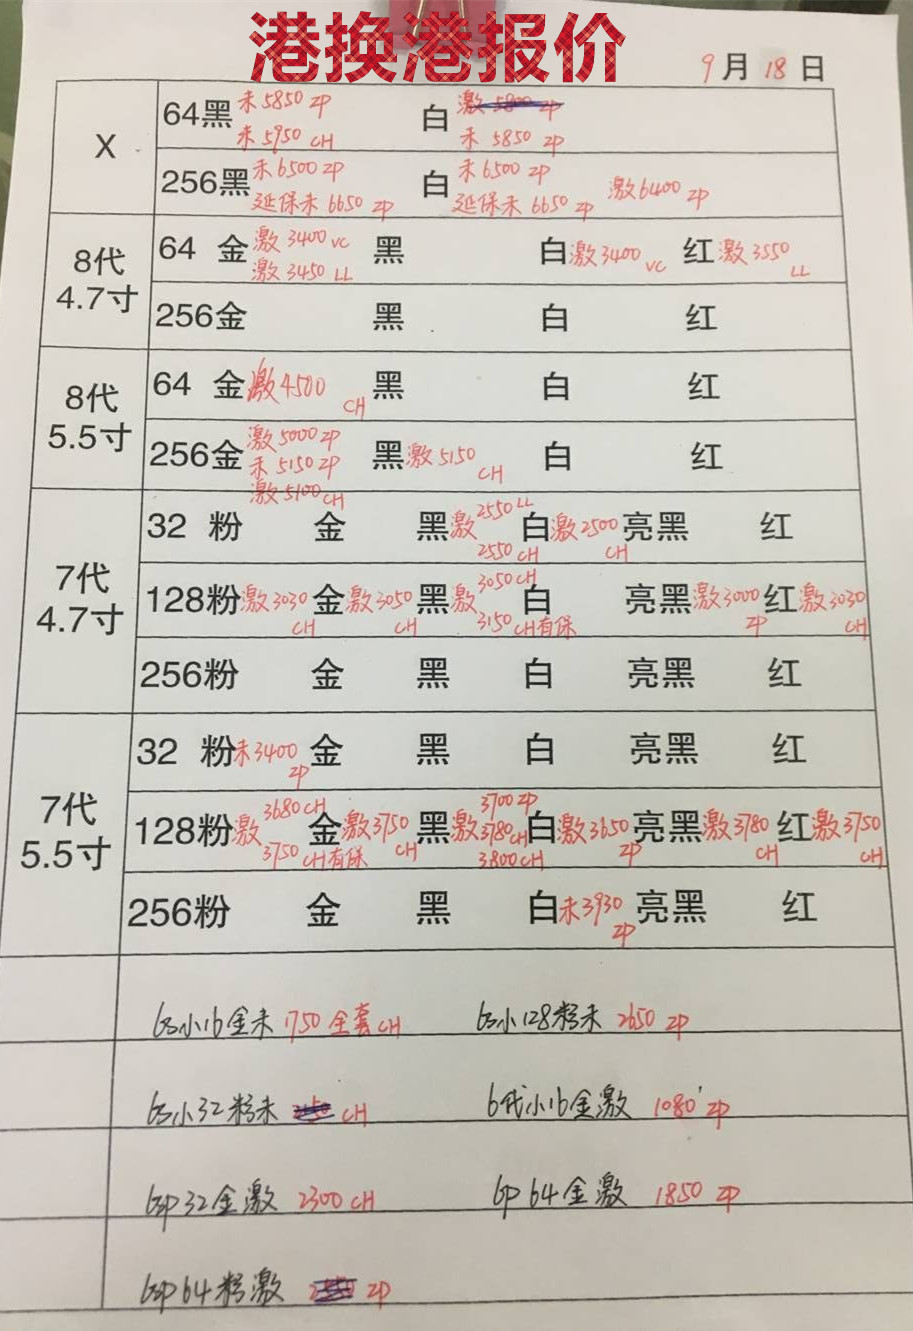 港换港报价
9月18日
X
64黑 未5850 ZP 未5950 CH 白 激5800 ZP 未5850 ZP
256黑 未6500 ZP 延保未6650 ZP 白 未6500 ZP 延保未6650 ZP 激6400 ZP
8代 4.7寸
64 金 激3400 VC 激3450 LL 黑 白 激3400 VC 红 激3550 LL
256金 黑 白 红
8代 5.5寸
64 金 激4500 CH 黑 白 红
256金 激5000 ZP 未5150 ZP 激5100 CH 黑 激5150 CH 白 红
7代 4.7寸
32 粉 金 黑 激2550 LL 2550 CH 白 激2500 CH 亮黑 红
128粉 激3030 CH 金 激3050 CH 黑 激3050 CH 3150 CH有保 白 亮黑 激3000 ZP 红 激3030 CH
256粉 金 黑 白 亮黑 红
7代 5.5寸
32 粉 未3400 ZP 金 黑 白 亮黑 红
128粉 激3680 CH 3750 CH有保 金 激3750 CH 黑 激3700 ZP 3780 CH 3800 CH 白 激3650 ZP 亮黑 激3780 CH 红 激3750 CH
256粉 金 黑 白 未3930 ZP 亮黑 红
6s小16金未 1750 全套 CH 6s小128粉未 2650 ZP
6s小32粉未 CH 6代小16金激 1080 ZP
6sp32金激 2300 CH 6p 64金激 1850 ZP
6sp64粉激 ZP